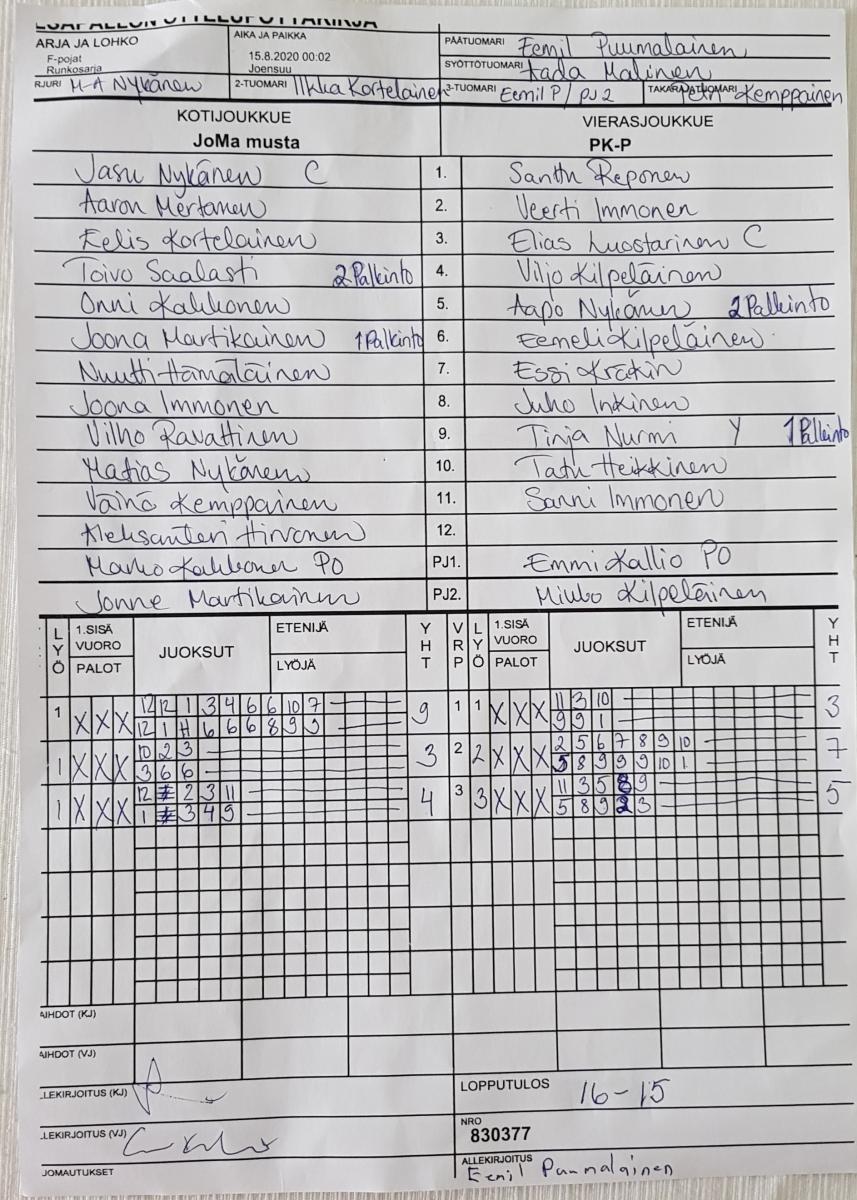 PESÄPALLON OTTELUPÖYTÄKIRJA
ARJA JA LOHKO
F-pojat
Runkosarja
AIKA JA PAIKKA
15.8.2020 00:02
Joensuu
PÄÄTUOMARI Eemil Puumalainen
SYÖTTÖTUOMARI Malinen
RJURI M-A Nykänen 2-TUOMARI Ilkka Kortelainen 3-TUOMARI Eemil P / PJ2 TAKARAJATUOMARI Kemppainen
KOTIJOUKKUE VIERASJOUKKUE
JoMa musta PK-P
Jasu Nykänen C 1. Santtu Reponen
Aaron Mertanen 2. Veerti Immonen
Eelis Kortelainen 3. Elias Luostarinen C
Toivo Saalasti 2 Palkinto 4. Viljo Kilpeläinen
Onni Kakkonen 5. Aapo Nykänen 2 Palkinto
Joona Martikainen 1 Palkinto 6. Eemeli Kilpeläinen
Nuutti Hämäläinen 7. Essi
Joona Immonen 8. Juho Inkinen
Vilho Ravattinen 9. Tinja Nurmi Y 1 Palkinto
Matias Nykänen 10. Tatu Heikkinen
Väinö Kemppainen 11. Sanni Immonen
Aleksanteri Hirvonen 12.
Marko Kakkonen PO PJ1. Emmi Kallio PO
Jonne Martikainen PJ2. Kilpeläinen
LYÖ 1.SISÄ VUORO PALOT JUOKSUT ETENIJÄ LYÖJÄ YHT VRP LYÖ 1.SISÄ VUORO PALOT JUOKSUT ETENIJÄ LYÖJÄ YHT
1 X X X 12 12 1 3 4 6 6 10 7 9 1 1 X X X 11 3 10 3
12 1 H 6 6 6 8 9 9 9 9 1
1 X X X 10 2 3 3 2 2 X X X 2 5 6 7 8 9 10 7
3 6 6 5 8 9 9 9 10 1
1 X X X 12 2 3 11 4 3 3 X X X 11 3 5 8 9 5
1 3 4 9 5 8 9 2 3
AIHDOT (KJ)
AIHDOT (VJ)
LLEKIRJOITUS (KJ)
LOPPUTULOS 16-15
LLEKIRJOITUS (VJ)
NRO
830377
JOMAUTUKSET
ALLEKIRJOITUS
Eemil Puumalainen